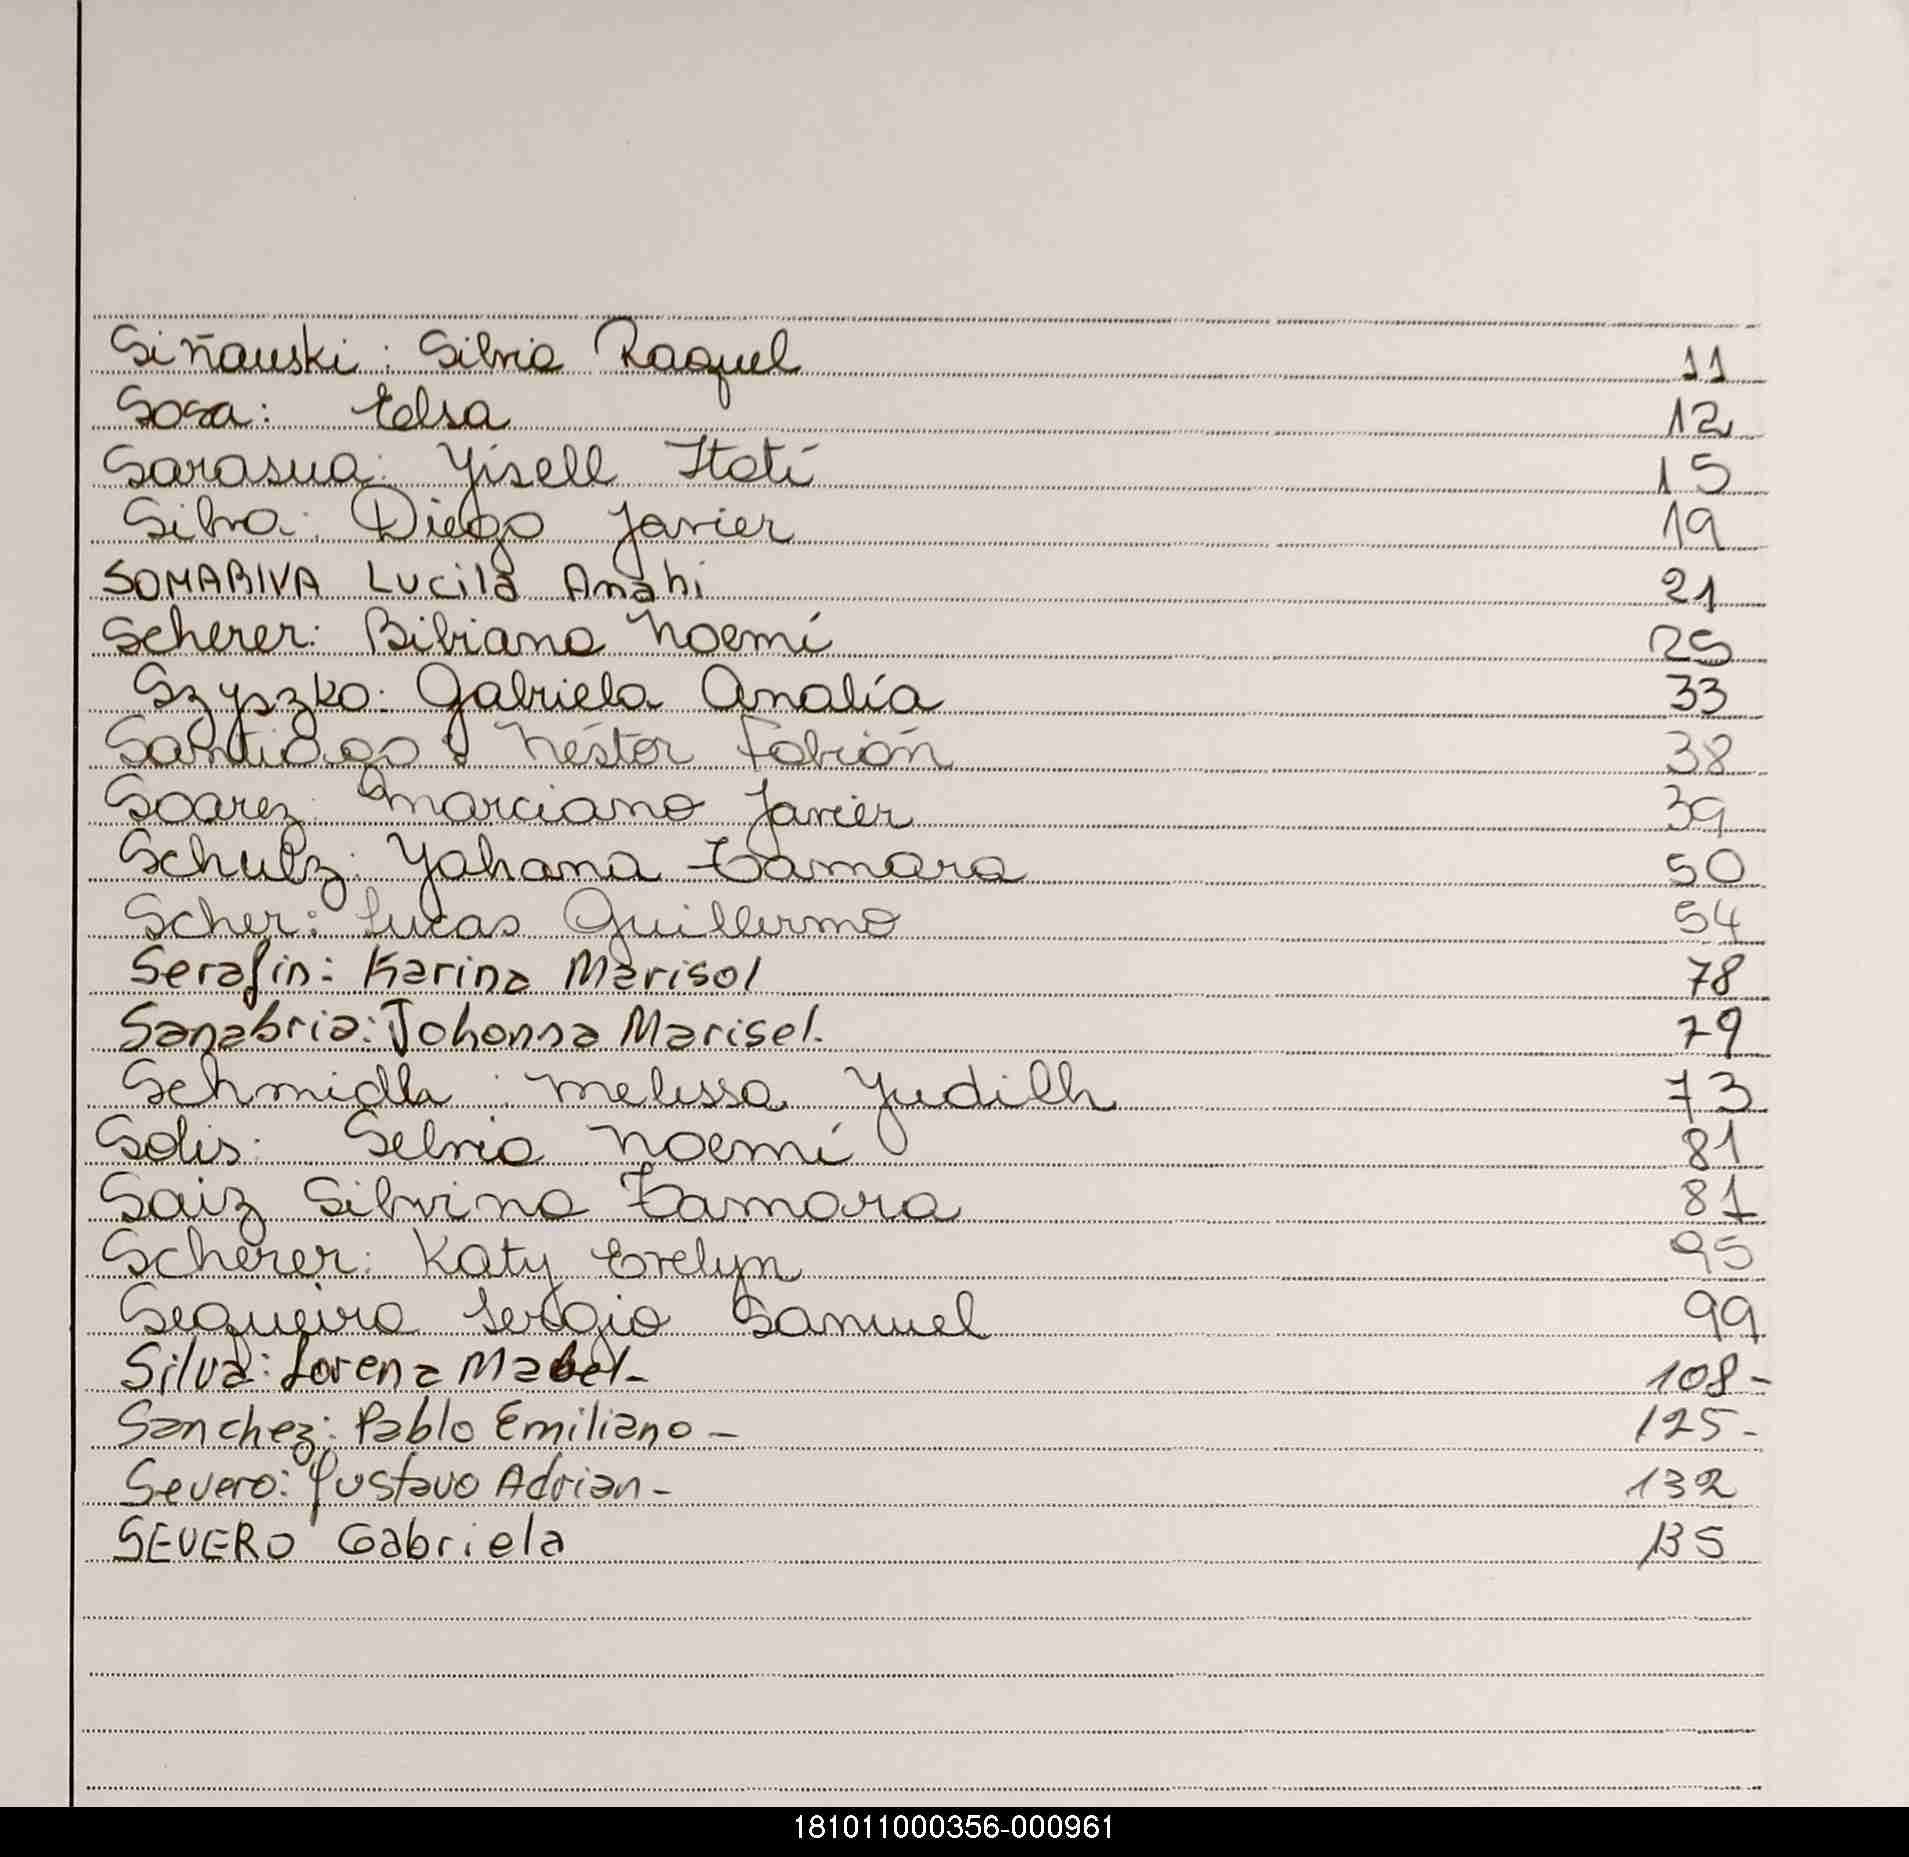 Siñauski: Silvia Raquel 11
Sosa: Elsa 12
Sarasua: Yisell Itatí 15
Silva: Diego Javier 19
SOMARIVA Lucila Anahi 21
Scherer: Bibiana Noemí 25
Szyszko: Gabriela Analía 33
Santiago: Néstor Fabián 38
Soarez: Marciano Javier 39
Schulz: Yohana Tamara 50
Scher: Lucas Guillermo 54
Serafin: Karina Marisol 78
Sanabria: Johonna Marisel. 79
Schmidth: Melissa Yudith 73
Solis: Selvia Noemí 81
Saiz Silvina Tamara 81
Scherer: Katy Evelyn 95
Sequeira Sergio Samuel 99
Silva: Lorena Mabel- 108-
Sanchez: Pablo Emiliano- 125-
Severo: Gustavo Adrian- 132
SEVERO Gabriela 135
181011000356-000961